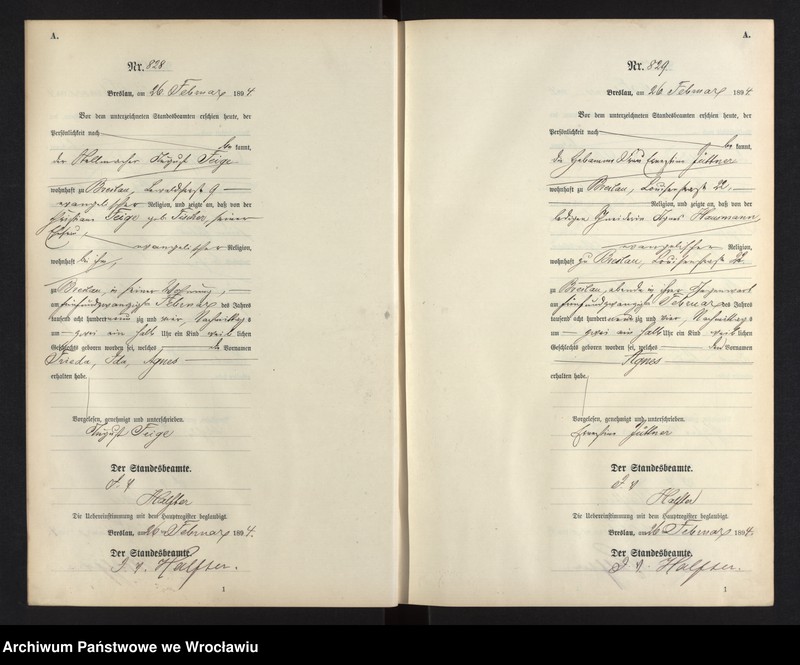 A.
Nr. 828
Breslau, am 26 Februar 1894.
Vor dem unterzeichneten Standesbeamten erschien heute, der
Persönlichkeit nach
be kannt,
der Stellmacher August Teige
wohnhaft zu Breslau, 9
evangelischer Religion, und zeigte an, daß von der
Christiane Teige geb. Fischer, seiner
Ehefrau,
evangelischer Religion,
wohnhaft bei ihm,
zu Breslau, in seiner Wohnung,
am fünfundzwanzigsten Februar des Jahres
tausend acht hundert neunzig und vier, Nachmittags
um zwei ein halb Uhr ein Kind weiblichen
Geschlechts geboren worden sei, welches die Vornamen
Frieda, Ida, Agnes
erhalten habe.
Vorgelesen, genehmigt und unterschrieben.
August Teige
Der Standesbeamte.
J. V.
Halfter
Die Uebereinstimmung mit dem Hauptregister beglaubigt.
Breslau, am 26 Februar 1894.
Der Standesbeamte.
J. V. Halfter.
1
A.
Nr. 829.
Breslau, am 26 Februar 1894
Vor dem unterzeichneten Standesbeamten erschien heute, der
Persönlichkeit nach
be kannt,
die Hebamme Ernestine Jüttner
wohnhaft zu Breslau, Louisenstraße 22.
Religion, und zeigte an, daß von der
ledigen Schneiderin Agnes Hausmann,
evangelischer Religion,
wohnhaft zu Breslau, Louisenstraße 22.
zu Breslau, ebenda in ihrer Gegenwart
am fünfundzwanzigsten Februar des Jahres
tausend acht hundert neunzig und vier, Nachmittags
um zwei ein halb Uhr ein Kind weiblichen
Geschlechts geboren worden sei, welches den Vornamen
Agnes
erhalten habe.
Vorgelesen, genehmigt und unterschrieben.
Ernestine Jüttner
Der Standesbeamte.
J. V.
Halfter
Die Uebereinstimmung mit dem Hauptregister beglaubigt.
Breslau, am 26 Februar 1894.
Der Standesbeamte.
J. V. Halfter.
1
Archiwum Państwowe we Wrocławiu